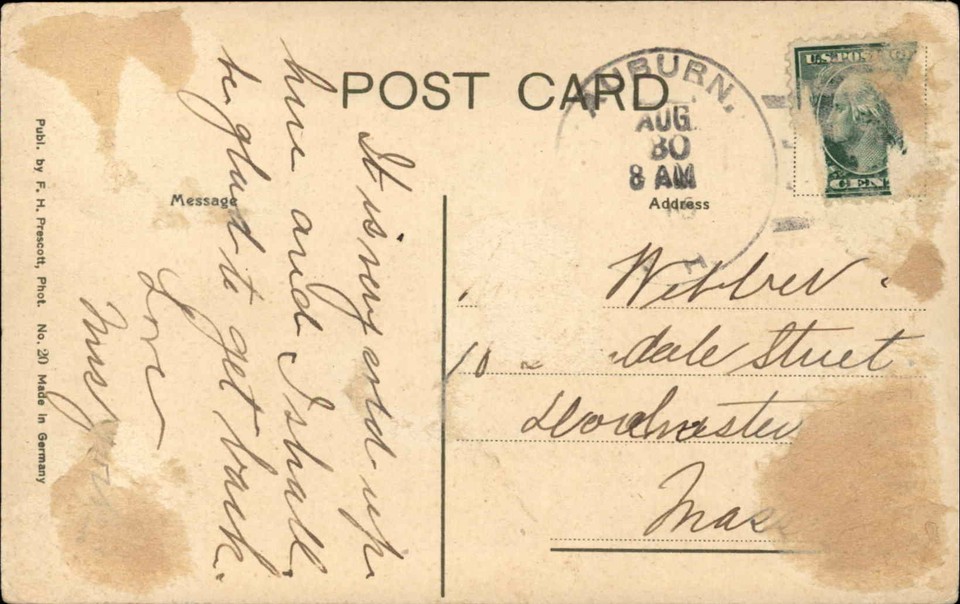 POST CARD
Message
Address
AUBURN,
AUG
30
8 AM
U.S. POSTAG
CEN
It is very cold up
here and I shall
be glad to get back.
Love
Webber
10
dale Street
Dorchester
Mass
Publ. by F. H. Prescott, Phot. No. 20 Made in Germany